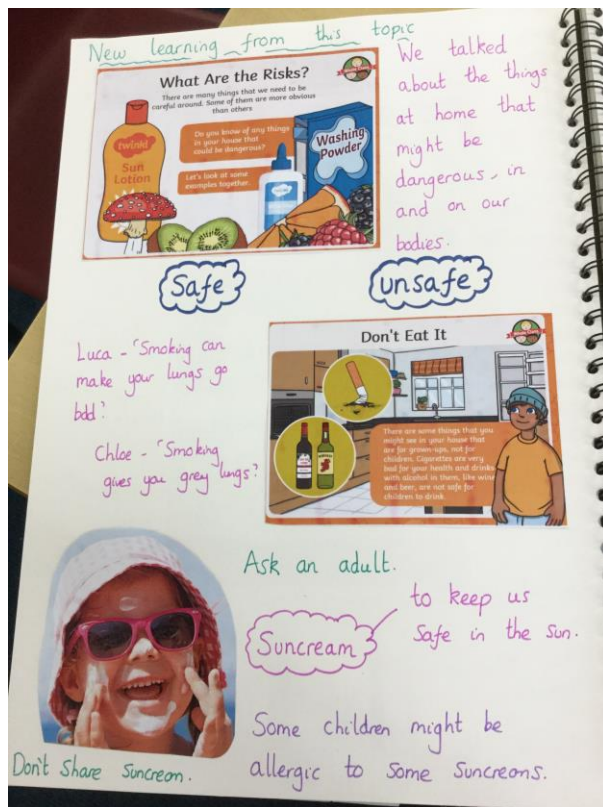 New learning from this topic
What Are the Risks?
There are many things that we need to be
careful around. Some of them are more obvious
than others
Do you know of any things
in your house that
could be dangerous?
Let's look at some
examples together.
twinkl
Sun
Lotion
Washing
Powder
We talked
about the things
at home that
might be
dangerous, in
and on our
bodies.
Safe
unsafe
Luca - "Smoking can
make your lungs go
bad"
Chloe - "Smoking
gives you grey lungs"
Don't Eat It
There are some things that you
might see in your house that
are for grown-ups, not for
children. Cigarettes are very
bad for your health and drinks
with alcohol in them, like wine
and beer, are not safe for
children to drink.
Ask an adult.
Suncream
to keep us
Safe in the sun.
Some children might be
allergic to some suncreams.
Don't share suncream.